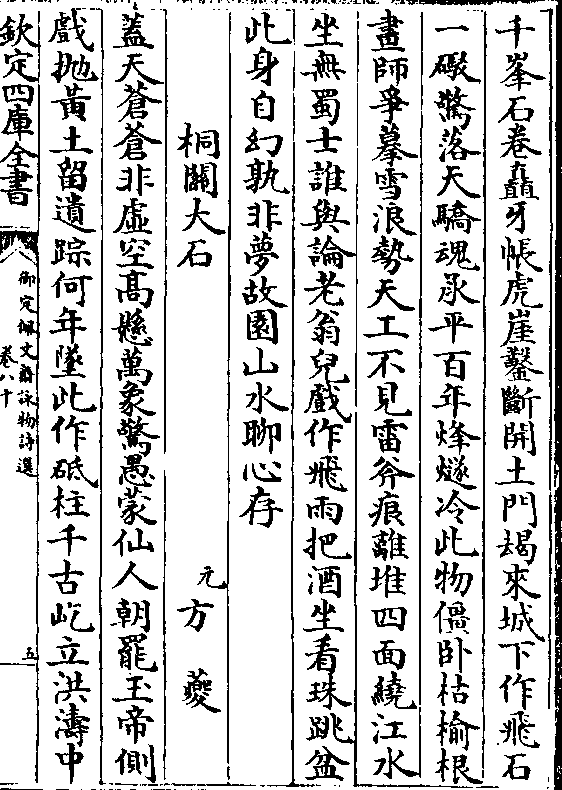 千峯石卷矗牙帳虎崖鑿斷開土門朅來城下作飛石
一礮驚落天驕魂承平百年烽燧冷此物僵卧枯榆根
畫師爭摹雪浪勢天工不見雷斧痕離堆四面繞江水
坐無蜀士誰與論老翁兒戲作飛雨把酒坐看珠跳盆
此身自幻孰非夢故園山水聊心存
桐關大石
元方夔
蓋天蒼蒼非虛空髙懸萬象驚愚蒙仙人朝罷玉帝側
戲抛黄土留遺踪何年墜此作砥柱千古屹立洪濤中
欽定四庫全書
御定佩文齋詠物詩選
卷八十
五